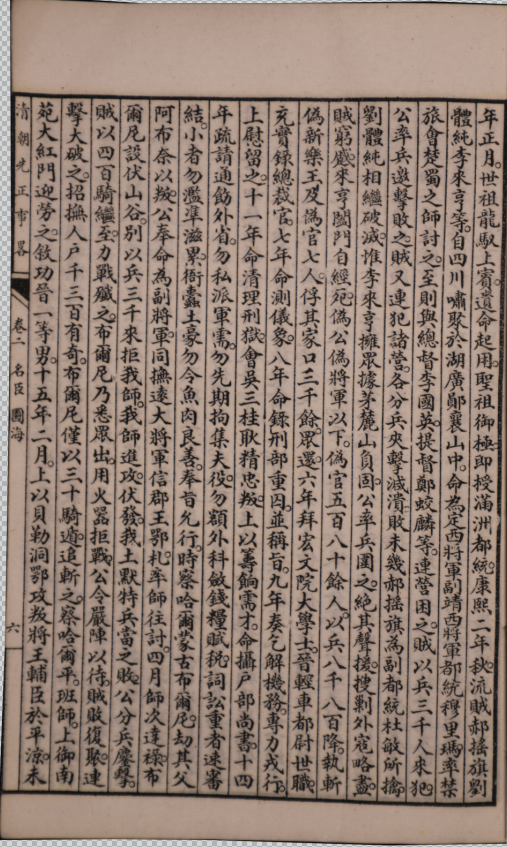 年正月。世祖龍馭上賓。遺命起用。聖祖御極。即授滿洲都統。康熙二年秋。流賊郝搖旗劉
體純李來亨等。自四川嘯聚於湖廣鄖襄山中。命為定西將軍。副靖西將軍都統穆里瑪率禁
旅會楚蜀之師討之。至則與總督李國英。提督鄭蛟麟等。連營困之。賊以兵三千人來犯。
公率兵邀擊敗之。賊又連犯諸營。各分兵夾擊。滅潰敗。未幾郝搖旗為副都統杜敏所擒。
劉體純相繼破滅。惟李來亨擁眾據茅麓山負固。公率兵圍之。絕其聲援。搜剿外寇略盡。
賊窮蹙。來亨闔門自經死。偽公偽將軍以下。偽官五百八十餘人。以兵八千八百降。執斬
偽新樂王及偽官七人。俘其家口三千餘。眾還。六年拜宏文院大學士。晉輕車都尉世職。
充實錄總裁官。七年命測儀象。八年命錄刑部重囚。並稱旨。九年奏乞解機務。專力戎行。
上慰留之。十一年命清理刑獄。會吳三桂耿精忠叛。上以籌餉需才。命攝戶部尚書。十四
年疏請通飭外省。勿私派軍需。勿先期拘集夫役。勿額外科斂錢糧賦稅。詞訟重者速審
結。小者勿濫準滋累。衙蠹土豪勿令魚肉良善。奉旨允行。時察哈爾蒙古布爾尼。劫其父
阿布奈以叛。公奉命為副將軍。同撫遠大將軍信郡王鄂札。率師往討。四月師次達祿。布
爾尼設伏山谷。別以兵三千來拒我師。我師進攻。伏發。我土默特兵當之敗。公分兵麈擊。
賊以四百騎繼至。力戰殲之。布爾尼乃悉眾出。用火器拒戰。公令嚴陣以待。賊敗復聚。連
擊大破之。招撫人戶千三百有奇。布爾尼僅以三十騎遁。追斬之。察哈爾平。班師。上御南
苑大紅門迎勞之。敘功晉一等男。十五年二月。上以貝勒洞鄂攻叛將王輔臣於平涼。未
清朝先正事略 卷二 名臣 圖海 六